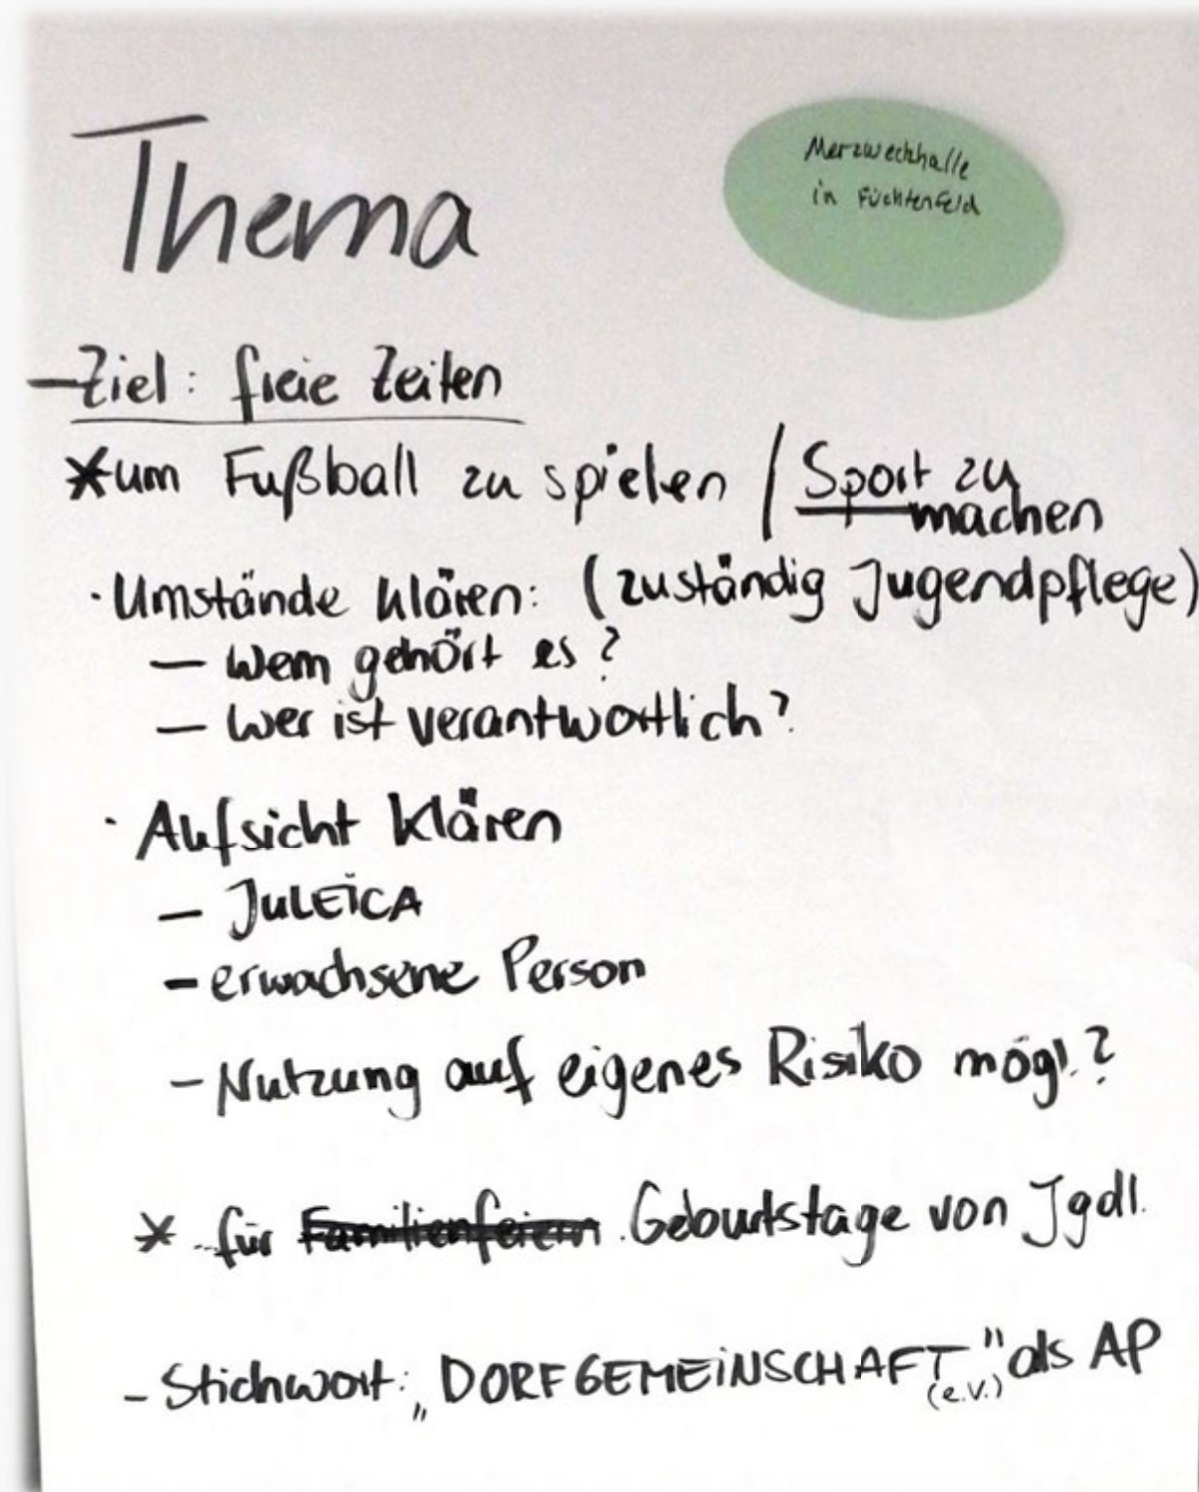 Thema
Merzweckhalle
in Füchtenfeld
– Ziel: freie Zeiten
* um Fußball zu spielen / Sport zu
machen
· Umstände klären: (zuständig Jugendpflege)
– Wem gehört es?
– Wer ist verantwortlich?
· Aufsicht klären
– JuLEiCA
– erwachsene Person
– Nutzung auf eigenes Risiko mögl.?
* für Familienfeiern Geburtstage von Jgdl.
– Stichwort: „DORFGEMEiNSCHAFT" als AP
(e.V.)